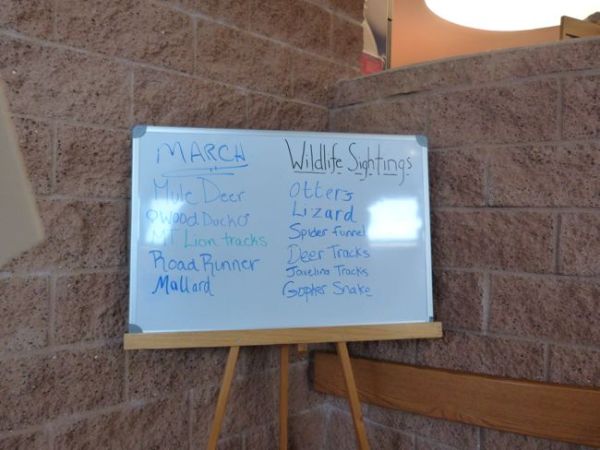 MARCH
Mule Deer
Wood Ducks
MT Lion tracks
Road Runner
Mallard
Wildlife Sightings
Otters
Lizard
Spider funnel
Deer Tracks
Javelina Tracks
Gopher Snake